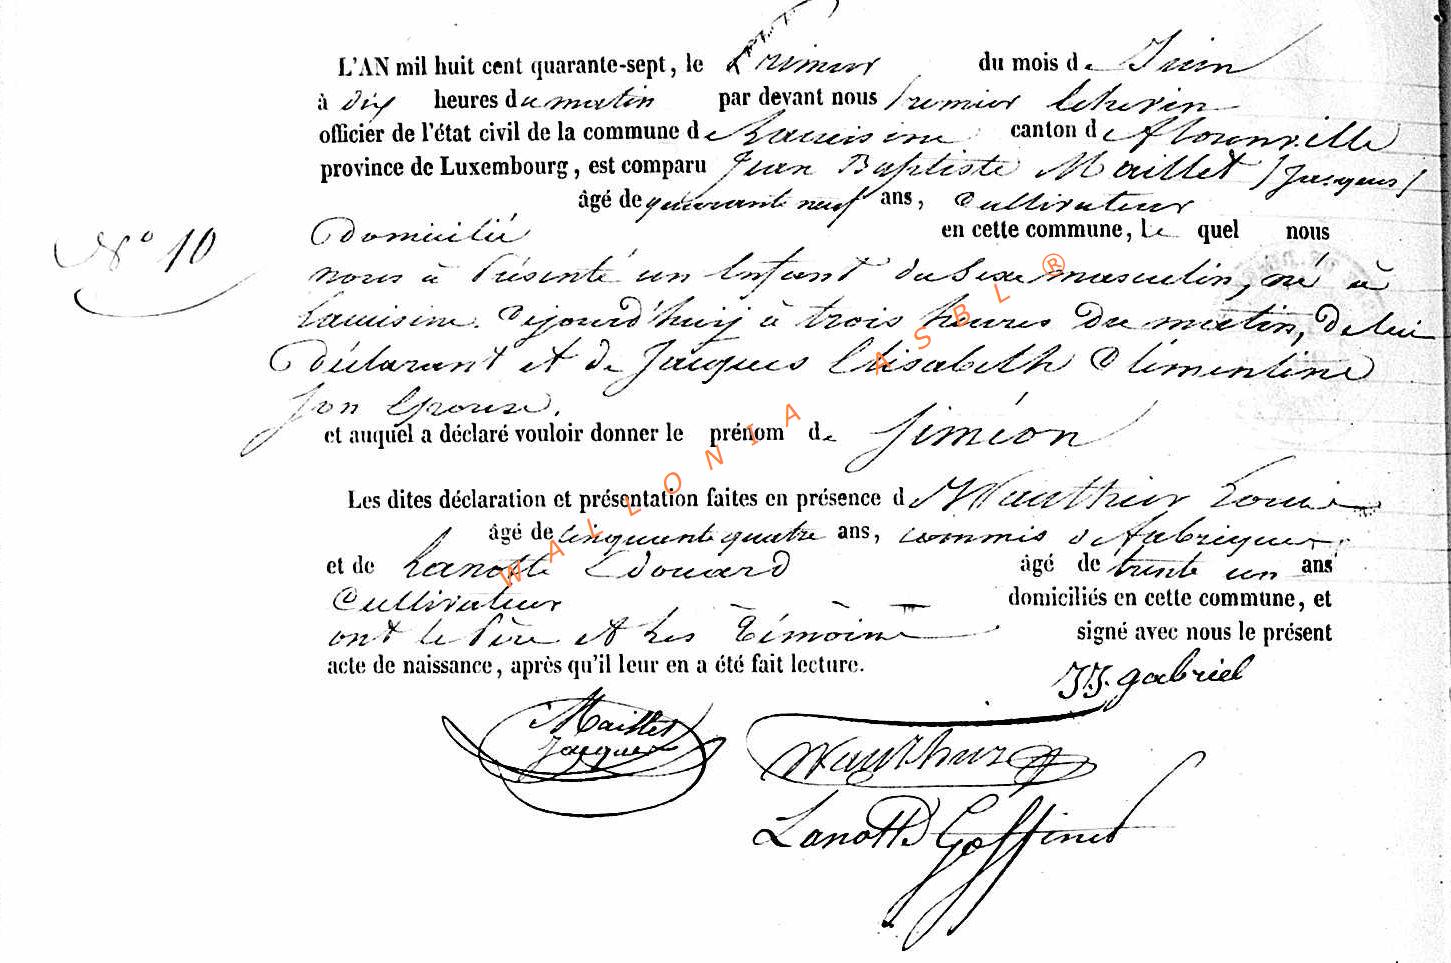 L'AN mil huit cent quarante-sept, le Premier du mois de Juin
à dix heures du matin par devant nous Premier Echevin
officier de l'état civil de la commune de Lacuisine canton de Florenville
province de Luxembourg, est comparu Jean Baptiste Maillet (Jacques)
âgé de quarante neuf ans, Cultivateur
N° 10
Domicilié en cette commune, le quel nous
nous à Présenté un Enfant du Sexe masculin, né à
Lacuisine. Dejourd'huij à trois heures Du matin, De lui
Déclarant et de Jacques Elisabeth Clémentine
son Epouse.
et auquel a déclaré vouloir donner le prénom de Siméon
Les dites déclaration et présentation faites en présence de Wauthier Louis
âgé de cinquante quatre ans, commis de fabrique
et de Lanotte Edouard âgé de trente un ans
Cultivateur domiciliés en cette commune, et
ont le Père et Les Témoins signé avec nous le présent
acte de naissance, après qu'il leur en a été fait lecture.
JJ. gabriel
Maillet
Jacques
Wauthier
Lanotte Goffinet
WALLONIA ASBL ®